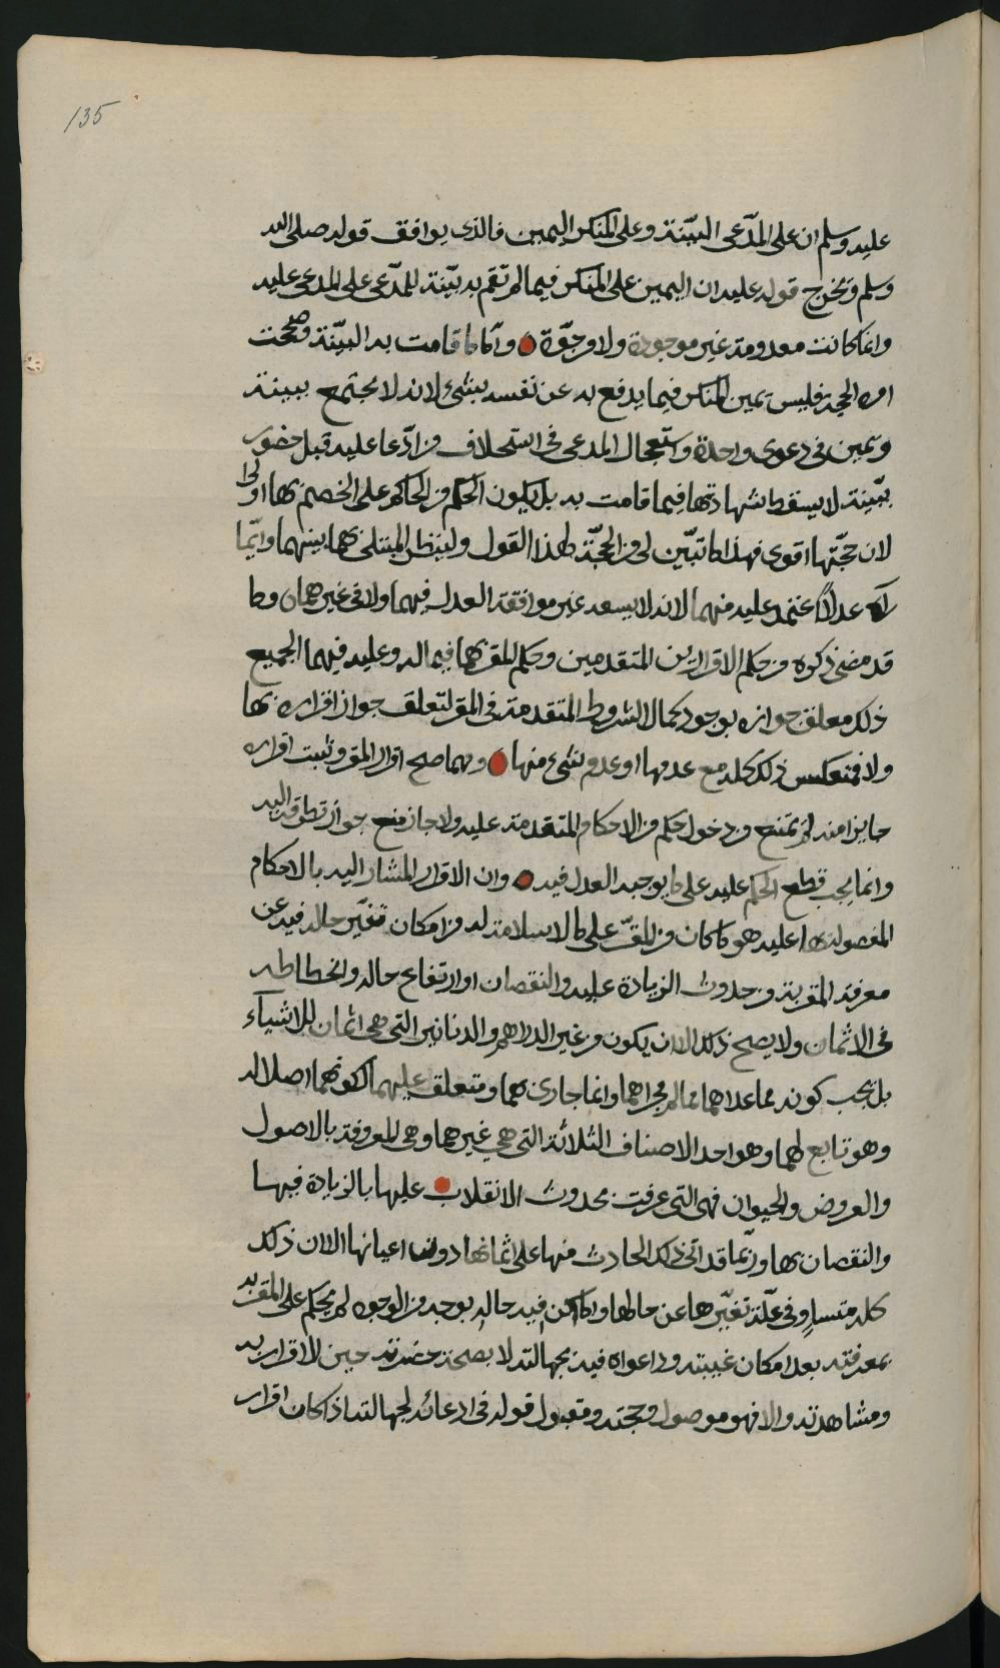 135
عليه وسلم ان على المدّعى البيّنة وعلى المنكر اليمين فالذى يوافق قوله صلى الله
وسلم ويخرج قوله عليه ان اليمين على المنكر فيما لم تقم به بيّنة للمدّعى على المدعى عليه
وانما كانت معدومة غير موجودة ولا مرجوّة واما ما قامت به البيّنة وصحّت
امره الحجة فليس يمين المنكر فيما يدفع به عن نفسه بشئ لانه لا يجتمع ببينة
ويمين فى دعوى واحدة واستعجال المدعى فى استحلاف من ادّعا عليه قبل حضور
بيّنة لا يسقط شهادتها فيما قامت به بل يكون الحكم من الحاكم على الخصم بها اولى
لان حجّتها اقوى فهذا ما تبيّن لى من الحجّة لهذا القول ولينظر المبتلى بهما بينهما وايّما
رآه عدلًا اعتمد عليه منهما لانه لا يسعه غير موافقة العدل فيهما ولا فى غيرهما وما
قد مضى ذكره من حكم الاقرارين المتقدمين وحكم المقر بهما فيما له وعليه فيهما الجميع
ذلك معلق جوازه بوجود كمال الشروط المتقدمة فى المقر لتعلق جواز اقراره بها
ولا فمتعكس ذلك كله مع عدمها او عدم شئ منها ومهما صح اقرار المقر وثبت اقراره
جايزا منه لم يمتنع من دخول حكم من الاحكام المتقدمة عليه ولا جاز منع جواز تطرقه اليه
وانما يجب قطع الحكم عليه على ما يوجبه العدل فيه وان الاقرار المشار اليه بالاحكام
المفصولة بها عليه هو ما كان من المقرّ على ما لا سلامة له من امكان تغيّر حاله فيه عن
معرفة المقر به من حدوث الزيادة عليه والنقصان او ارتفاع حاله وانحطاطه
فى الاثمان ولا يصح ذلك الا ان يكون من غير الدراهم والدنانير التى هى اثمان للاشياء
بل يجب كونه مما عداهما مما لم يجراهما وانما جارى بهما ومتعلق عليهما لكونهما اصلا له
وهو تابع لهما وهو احد الاصناف الثلاثة التى هي غيرهما وهى المعروفة بالاصول
والعروض والحيوان فهى التى عرفت بحدوث الانقلاب عليها بالزيادة فيها
والنقصان بها وربّما قد اتى ذلك الحادث منها على اثمانها دون اعيانها الا ان ذلك
كله متساوٍ فى علّة تغيّرها عن حالها وما امكن فيه حاله بوجه من الوجوه لم يحكم على المقر به
بمعرفته بعد امكان غيبته ودعواه فيه بجهالته لا بصحة حضرته حين الاقرار به
ومشاهدته والا فهو موصول وحجته ومقبول قوله فى ادعائه لجهالته اذا كان اقرار